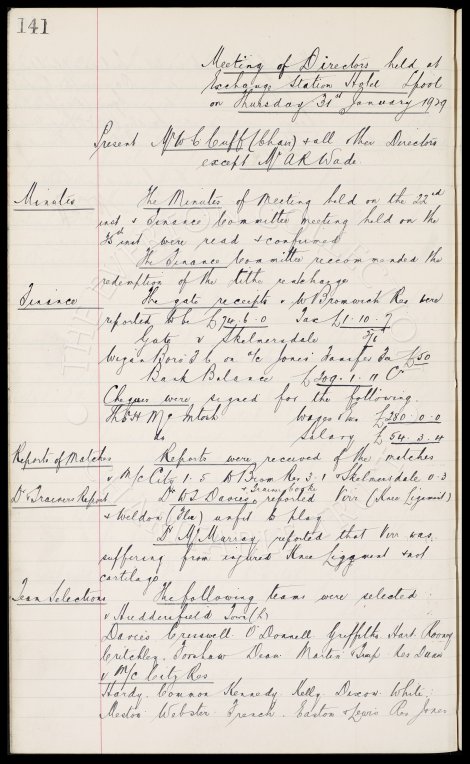 141
Meeting of Directors held at
Exchange Station Hotel L'pool
on Thursday 31st January 1929
Present Mr W C Cuff (Chair) & all other Directors
except Mr A R Wade
Minutes The Minutes of Meeting held on the 22nd
inst & Finance Committee meeting held on the
inst were read & confirmed
The Finance Committee recommended the
redemption of the tithe rentcharge
Finance The gate receipts v W Bromwich Res were
reported to be £74.6.0 Tax £1.10.7
Gate v Skelmersdale 5/6
Wigan Boro' F C on a/c Jones' Transfer Fee £50
Bank Balance £209.1.11 Cr
Cheques were signed for the following
Th E H McIntosh Wages &c £280.0.0
do Salary £54.3.4
Reports of Matches Reports were received of the matches
v M/c City 1.5 W Brom Res 3.1 & Skelmersdale 0.3
Dr & Trainers Report Dr W S Davies & Trainer Cooke reported Kerr (Knee ligament)
& Weldon (Flu) unfit to play
Dr McMurray reported that Kerr was
suffering from injured Knee liggment & not
cartilage
Team Selections The following teams were selected:
v Huddersfield Town (L)
Davies Cresswell O'Donnell Griffiths Hart Rooney
Critchley Forshaw Dean Martin & Troup Res Dixon
v M/c City Res
Hardy. Common Kennedy Kelly. Dixon White.
Meston Webster French. Easton & Lewis Res Jones